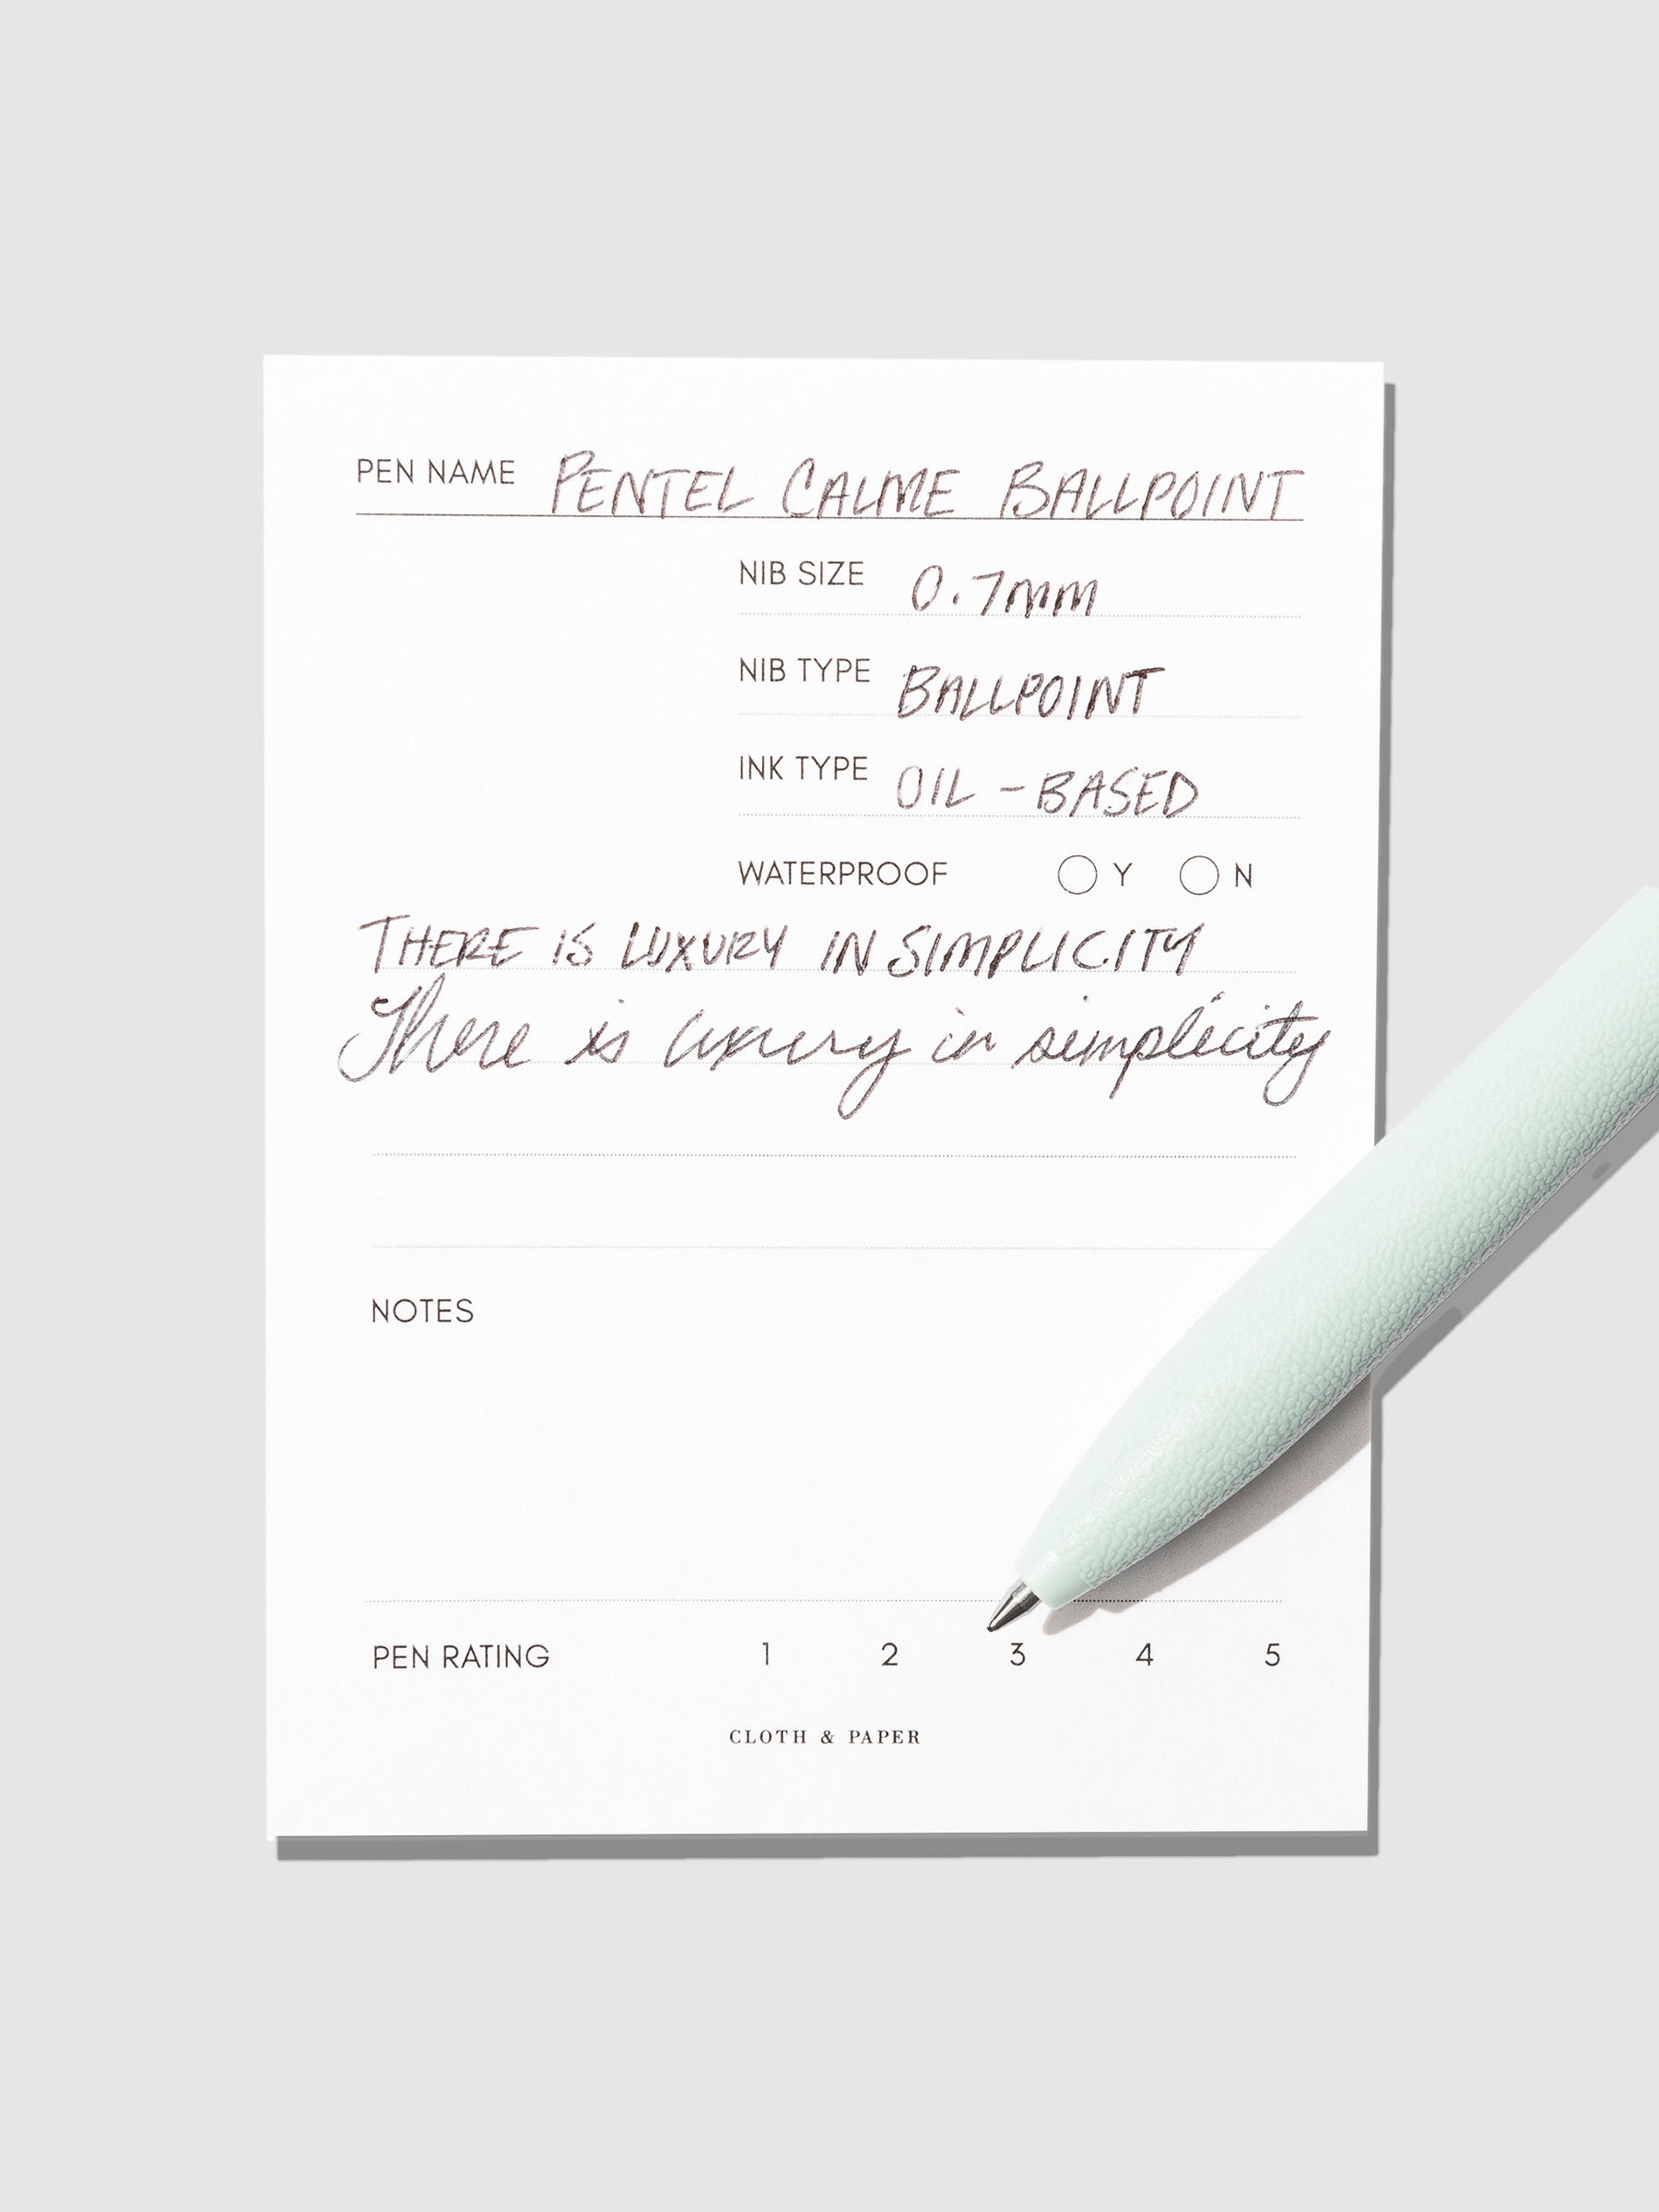 PEN NAME PENTEL CALME BALLPOINT
NIB SIZE 0.7mm
NIB TYPE BALLPOINT
INK TYPE OIL-BASED
WATERPROOF Y N
THERE IS LUXURY IN SIMPLICITY
There is luxury in simplicity
NOTES
PEN RATING 1 2 3 4 5
CLOTH & PAPER